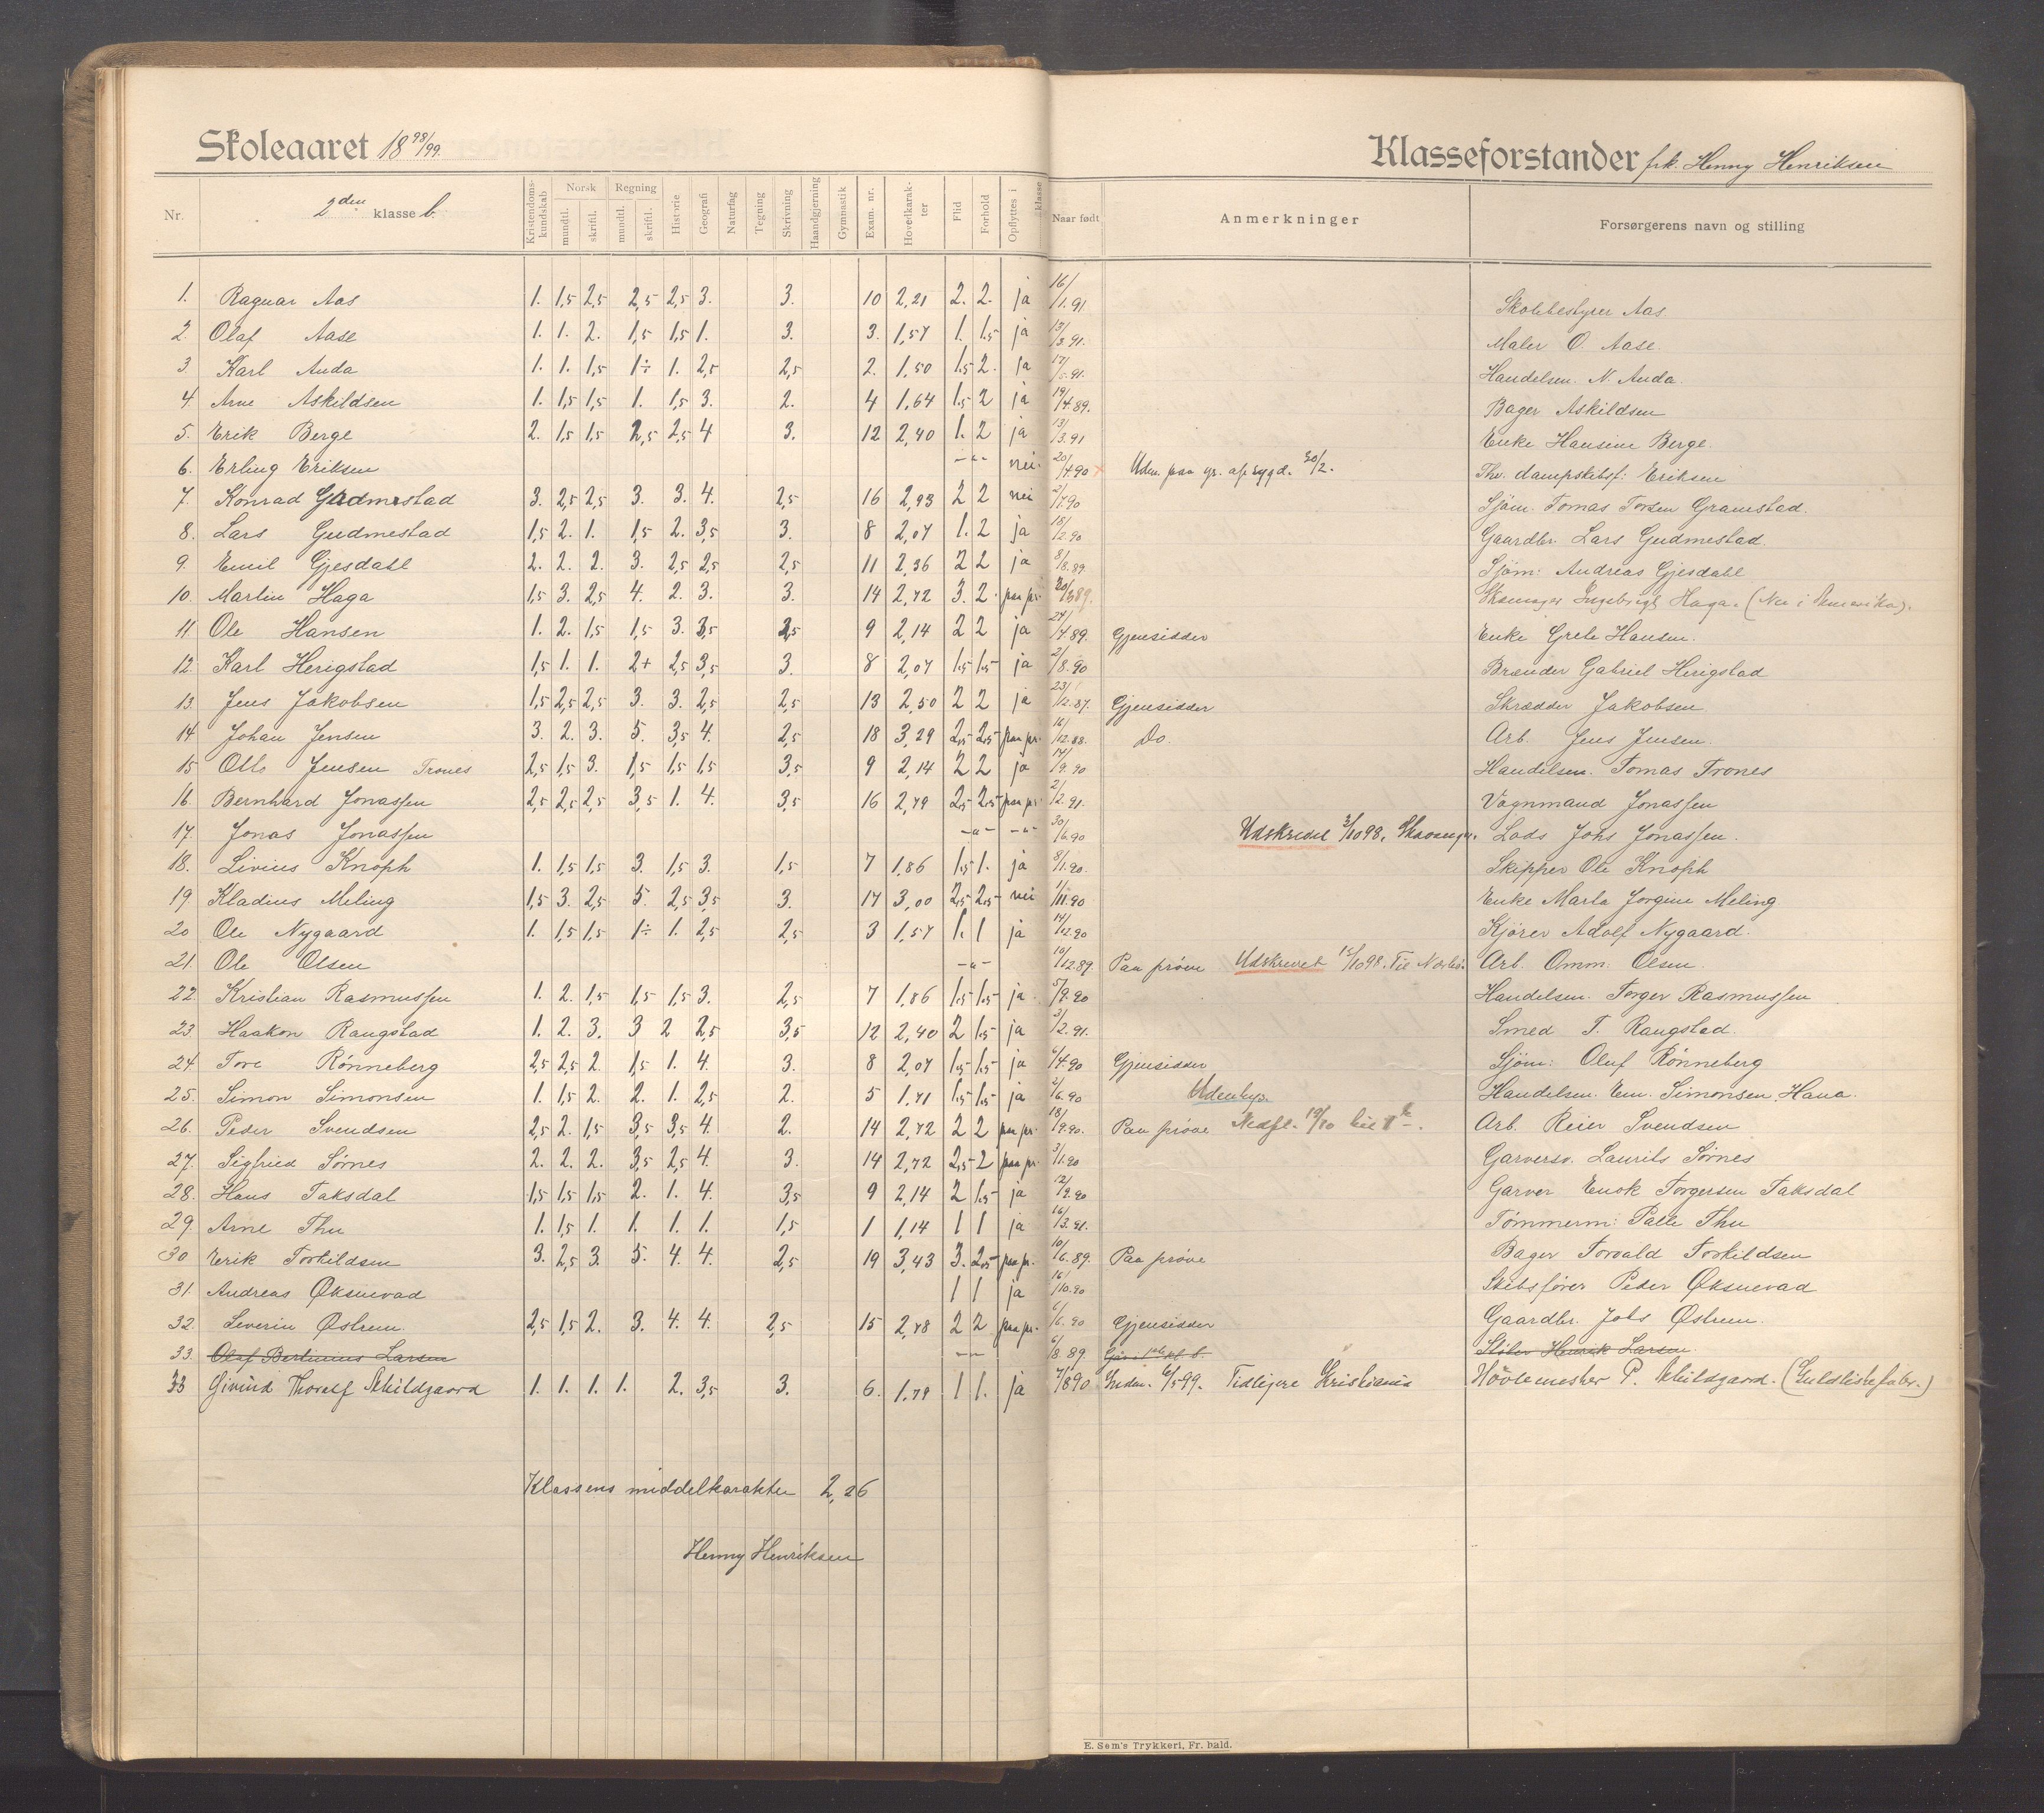 Skoleaaret 1898/99.
Klasseforstander frk. Henny Henriksen
Nr. 2den klasse b. Kristendomskundskab Norsk mundtl. skriftl. Regning mundtl. skriftl. Historie Geografi Naturfag Tegning Skrivning Haandgjerning Gymnastik Exam. nr. Hovedkarakter Flid Forhold Opflyttes i klasse Naar født Anmerkninger Forsørgerens navn og stilling
1. Ragnar Aas 1. 1,5 2,5 2,5 2,5 3. 3. 10 2,21 2. 2. ja 16/1.91 Skolebestyrer Aas
2. Olaf Aase 1. 1. 2. 1,5 1,5 1. 3. 3. 1,57 1. 1.5 ja 13/3.91. Maler O. Aase.
3. Karl Anda 1. 1. 1,5 1÷ 1. 2,5 2,5 2. 1,50 1.5 2. ja 17/5.91. Handelsm. N. Anda.
4. Arne Askildsen 1. 1,5 1,5 1. 1,5 3. 2. 4 1,64 1.5 2 ja 19/4.89. Bager Askildsen
5. Erik Berge 2. 1,5 1,5 2,5 2,5 4 3. 12 2,40 1. 2 ja 13/3.91 Enke Hansine Berge.
6. Erling Eriksen -"- nei. 20/4.90 Uden. paa gr. af sygd. 20/2. Thv. dampskibsf: Eriksen
7. Konrad Gudmestad 3. 2,5 2,5 3. 3. 4. 2,5 16 2,93 2 2 nei 2/7.90 Sjøm. Tomas Torsen Gramstad.
8. Lars Gudmestad 1,5 2. 1. 1,5 2. 3,5 3. 8 2,07 1. 2 ja 18/2.90 Gaardbr. Lars Gudmestad.
9. Emil Gjesdahl 2. 2. 2. 3. 2,5 2,5 2,5 11 2,36 2 2 ja 8/8.89. Sjøm: Andreas Gjesdahl
10. Martin Haga 1,5 3. 2,5 4. 2. 3. 3. 14 2,72 3. 2. paa pr. Skomager Ingebrigt Haga. (Nu i Amerika).
11. Ole Hansen 1. 2. 1,5 1,5 3. 3,5 2,5 9 2,14 2 2 ja 24/4.89. Gjensidder Enke Grete Hansen.
12. Karl Herigstad 1,5 1. 1. 2+ 2,5 3,5 3. 8 2,07 1.5 1.5 ja 2/8.90 Brænder Gabriel Herigstad
13. Jens Jakobsen 1,5 2,5 2,5 3. 3. 2,5 2,5 13 2,50 2 2 ja 23/12.87. Gjensidder Skrædder Jakobsen
14 Johan Jensen 3. 2. 3. 5. 3,5 4. 2,5 18 3,29 2.5 2.5 paa pr. 16/12.88. Do. Arb. Jens Jensen.
15 Otto Jensen Trones 2,5 1,5 3. 1,5 1,5 1,5 3,5 9 2,14 2 2 ja 14/9.90 Handelsm. Tomas Trones
16. Bernhard Jonassen 2,5 2,5 2,5 3,5 1. 4. 3,5 16 2,79 2.5 2.5 paa pr. 2/2.91. Vognmand Jonassen
17. Jonas Jonassen -"- -"- 30/6.90 Udskrevet 3/10 98. Stavanger. Lods Johs Jonassen.
18. Livius Knoph 1. 1,5 1,5 3. 1,5 3. 1,5 7 1,86 1.5 1. ja 8/1.90. Skipper Ole Knoph
19 Kladius Meling 1,5 3. 2,5 5. 2,5 3,5 3. 17 3,00 2.5 2.5 nei 1/11.90 Enke Marta Jorgine Meling
20 Ole Nygaard 1. 1,5 1,5 1÷ 1. 2,5 2,5 3 1,57 1. 1 ja 14/12.90 Kjører Adolf Nygaard.
21. Ole Olsen -"- 10/12.89. Paa prøve Udskrevet 15/10 98. Til Nærbø. Arb. Omm. Olsen.
22. Kristian Rasmussen 1. 2. 1,5 1,5 1,5 3. 2,5 7 1,86 1.5 1.5 ja. 5/9.90 Handelsm. Torger Rasmussen
23 Haakon Raugstad 1. 2. 3. 3 2 2,5 3,5 12 2,40 2 1.5 ja 3/2.91. Smed T. Raugstad.
24 Tore Rønneberg 2,5 2,5 2. 1,5 1. 4. 3. 8 2,07 1.5 1.5 ja 6/4.90 Gjensidder Sjøm: Oluf Rønneberg
25. Simon Simonsen 1. 1,5 2. 2. 1. 2,5 2. 5 1,71 1.5 1.5 ja 2/6.90 Udenbys. Handelsm. Em. Simonsen, Hana.
26. Peder Svendsen 2,5 2. 1,5 3,5 3,5 4. 2. 14 2,72 2 2 paa pr. 18/9.90. Paa prøve Nedfl. 19/10 Arb. Reier Svendsen
27. Sigfried Sørnes 2. 2. 2. 3,5 2,5 4. 3. 14 2,72 2,5 2 paa pr. 3/1.90 Garversv. Laurits Sørnes
28. Hans Taksdal 1,5 1,5 1,5 2. 1. 4. 3,5 9 2,14 2 1.5 ja 12/9.90 Garver Enok Torgersen Taksdal
29. Arne Thu 1. 1,5 1. 1. 1. 1. 1,5 1 1,14 1 1 ja 16/3.91. Tømmerm: Palle Thu
30 Erik Torkildsen 3. 2,5 3. 5. 4. 4. 2,5 19 3,43 3. 2.5 paa pr. 10/6.89. Paa prøve Bager Torvald Torkildsen
31. Andreas Øksnevad 1 1 ja 16/10.90 Skibsfører Peder Øksnevad
32. Severin Østrem. 2,5 1,5 2. 3. 4. 4. 2,5 15 2,78 2 2 paa pr. 6/6.90 Gjensidder Gaardbr. Johs Østrem.
33. Olaf Bertinius Larsen -"- 6/8.89. Går i 1ste kl. b. Henrik Larsen.
33 Øivind Thoralf Skildgaard 1. 1. 1. 1. 2. 3,5 3. 6. 1.78 1 1. ja 7/8 90 Indm. 6/5 99. Tidligere Kristiania Høvlemester P. Skildgaard. (Guldlistefabr.)
Klassens middelkarakter 2,26
Henny Henriksen
E. Sem's Trykkeri, Fr. hald.